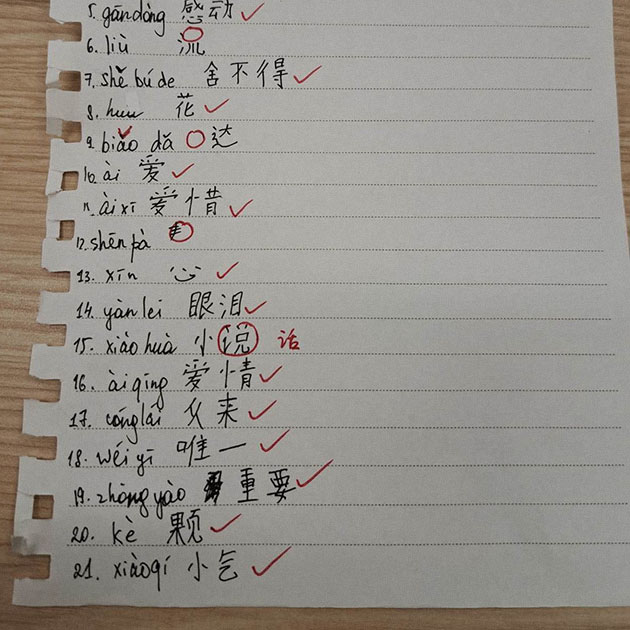 5. gǎndòng 感动
6. liù 流
7. shě bú de 舍不得
8. 花
9. biǎo dǎ 达
10. ài 爱
11. ài xī 爱惜
12. shēn pà
13. xīn 心
14. yàn lèi 眼泪
15. xiǎo huà 小说 话
16. ài qíng 爱情
17. cónglái 从来
18. wéi yī 唯一
19. zhòng yào 重要
20. kè 颗
21. xiǎoqí 小气